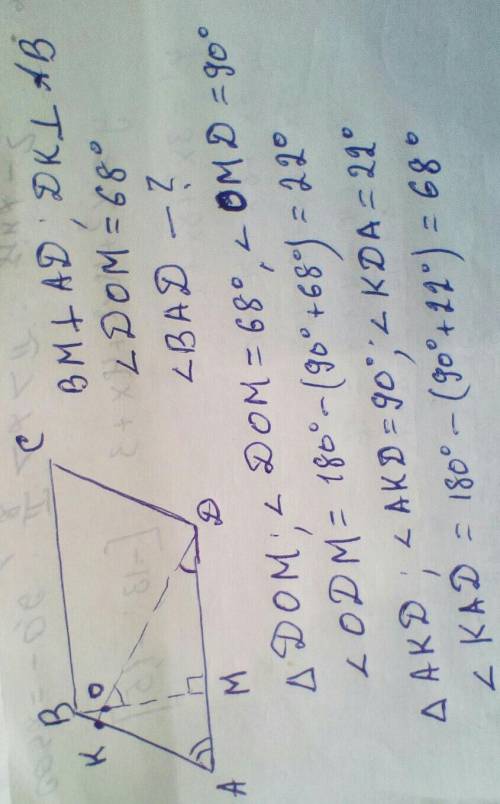 BM⊥AD; DK⊥AB
∠DOM = 68°
∠BAD — ?
B
C
K
O
A
M
D
△DOM; ∠DOM = 68°; ∠OMD = 90°
∠ODM = 180° − (90° + 68°) = 22°
△AKD; ∠AKD = 90°; ∠KDA = 22°
∠KAD = 180° − (90° + 22°) = 68°